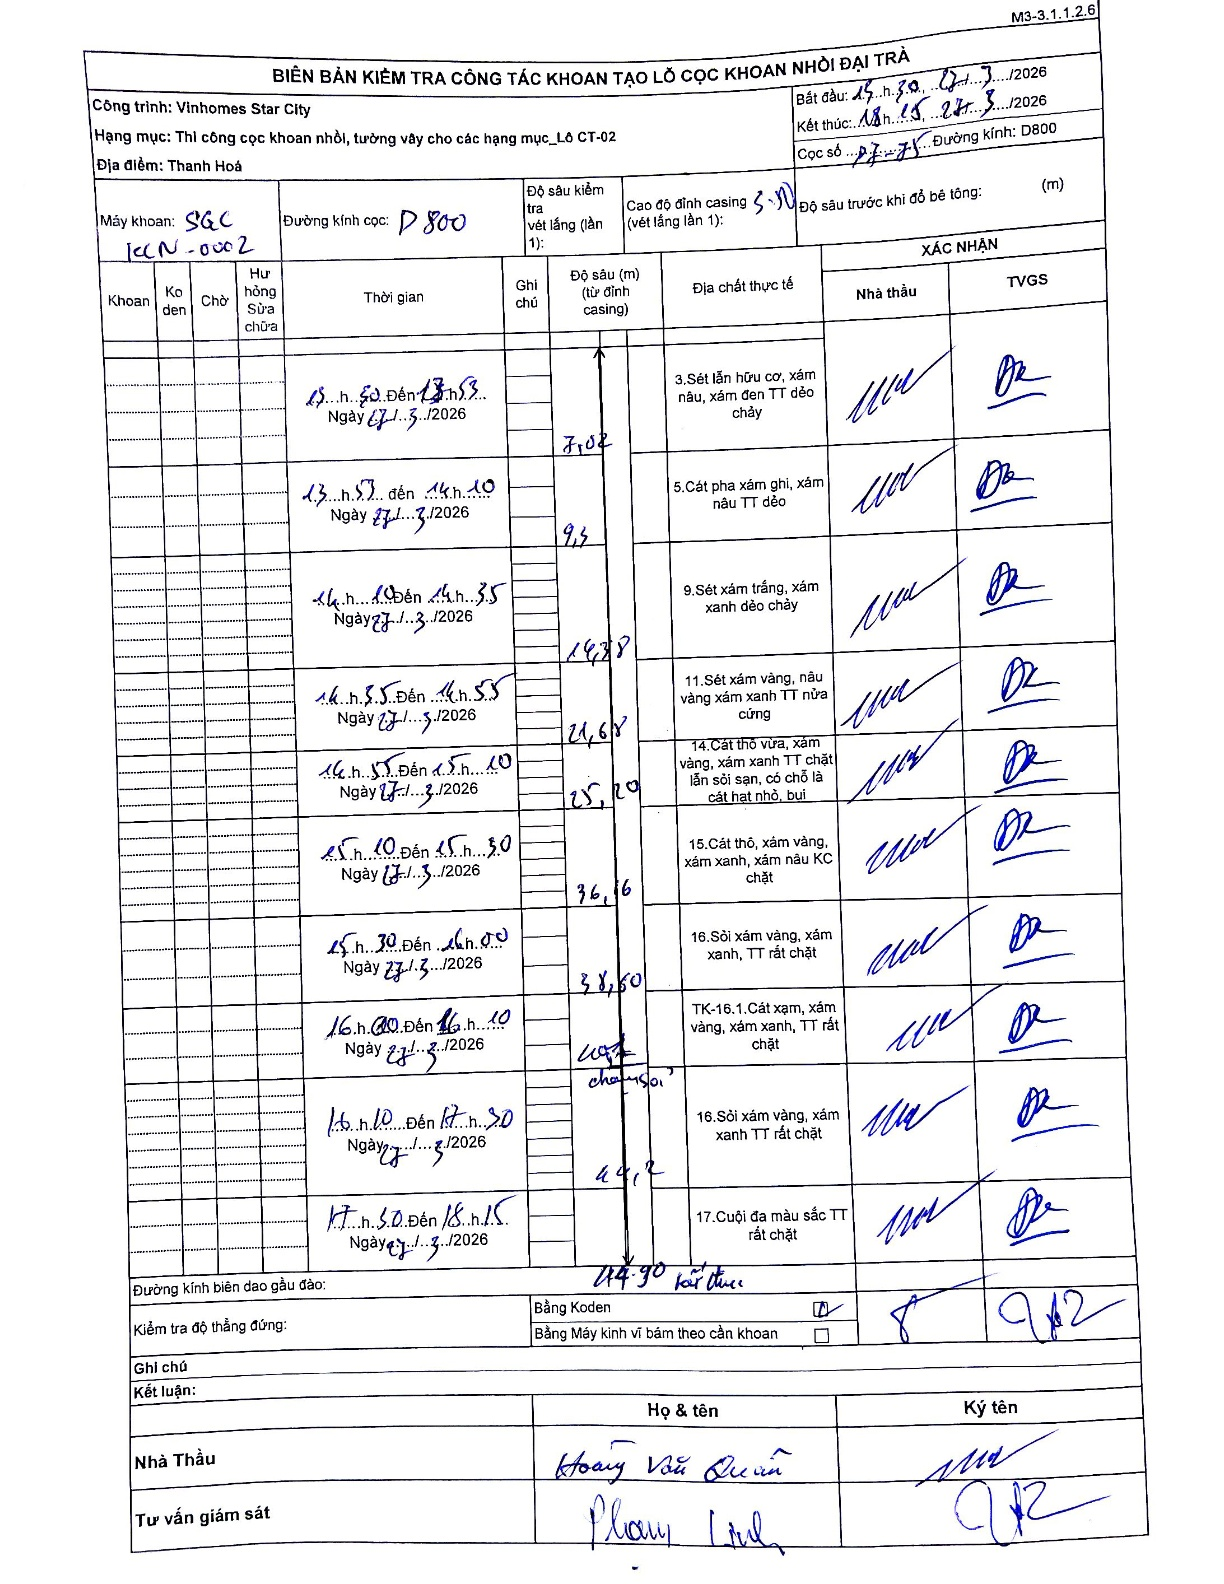 M3-3.1.1.2.6
BIÊN BẢN KIỂM TRA CÔNG TÁC KHOAN TẠO LỖ CỌC KHOAN NHỒI ĐẠI TRÀ
Công trình: Vinhomes Star City
Hạng mục: Thi công cọc khoan nhồi, tường vây cho các hạng mục_Lô CT-02
Địa điểm: Thanh Hoá
Bắt đầu: 13 h 30, 27/3/2026
Kết thúc: 18h 15, 27/3/2026
Cọc số P7-75 Đường kính: D800
Máy khoan: SGC
KCN-0002
Đường kính cọc: D800
Độ sâu kiểm
tra
vét lắng (lần
1):
Cao độ đỉnh casing
(vét lắng lần 1):
Độ sâu trước khi đổ bê tông: (m)
Khoan
Ko
den
Chờ
Hư
hỏng
Sửa
chữa
Thời gian
Ghi
chú
Độ sâu (m)
(từ đỉnh
casing)
Địa chất thực tế
XÁC NHẬN
Nhà thầu
TVGS
13 h 30 Đến 13 h 53
Ngày 27/3/2026
7,02
3.Sét lẫn hữu cơ, xám
nâu, xám đen TT dẻo
chảy
13 h 53 đến 14 h 10
Ngày 27/3/2026
9,3
5.Cát pha xám ghi, xám
nâu TT dẻo
14 h 10 Đến 14 h 35
Ngày 27/3/2026
14,38
9.Sét xám trắng, xám
xanh dẻo chảy
14 h 35 Đến 14 h 55
Ngày 27/3/2026
21,68
11.Sét xám vàng, nâu
vàng xám xanh TT nửa
cứng
14 h 55 Đến 15 h 10
Ngày 27/3/2026
25,20
14.Cát thô vừa, xám
vàng, xám xanh TT chặt
lẫn sỏi sạn, có chỗ là
cát hạt nhỏ, bụi
15 h 10 Đến 15 h 30
Ngày 27/3/2026
36,16
15.Cát thô, xám vàng,
xám xanh, xám nâu KC
chặt
15 h 30 Đến 16 h 00
Ngày 27/3/2026
38,60
16.Sỏi xám vàng, xám
xanh, TT rất chặt
16 h 00 Đến 16 h 10
Ngày 27/3/2026
chạm sỏi
TK-16.1.Cát xạm, xám
vàng, xám xanh, TT rất
chặt
16 h 10 Đến 17 h 30
Ngày 27/3/2026
44,2
16.Sỏi xám vàng, xám
xanh TT rất chặt
17 h 30 Đến 18 h 15
Ngày 27/3/2026
17.Cuội đa màu sắc TT
rất chặt
44.90 kết thúc
Đường kính biên dao gầu đào:
Kiểm tra độ thẳng đứng:
Bằng Koden
Bằng Máy kinh vĩ bám theo cần khoan
Ghi chú
Kết luận:
Họ & tên
Ký tên
Nhà Thầu
Hoàng Văn Quân
Tư vấn giám sát
Phạm Linh